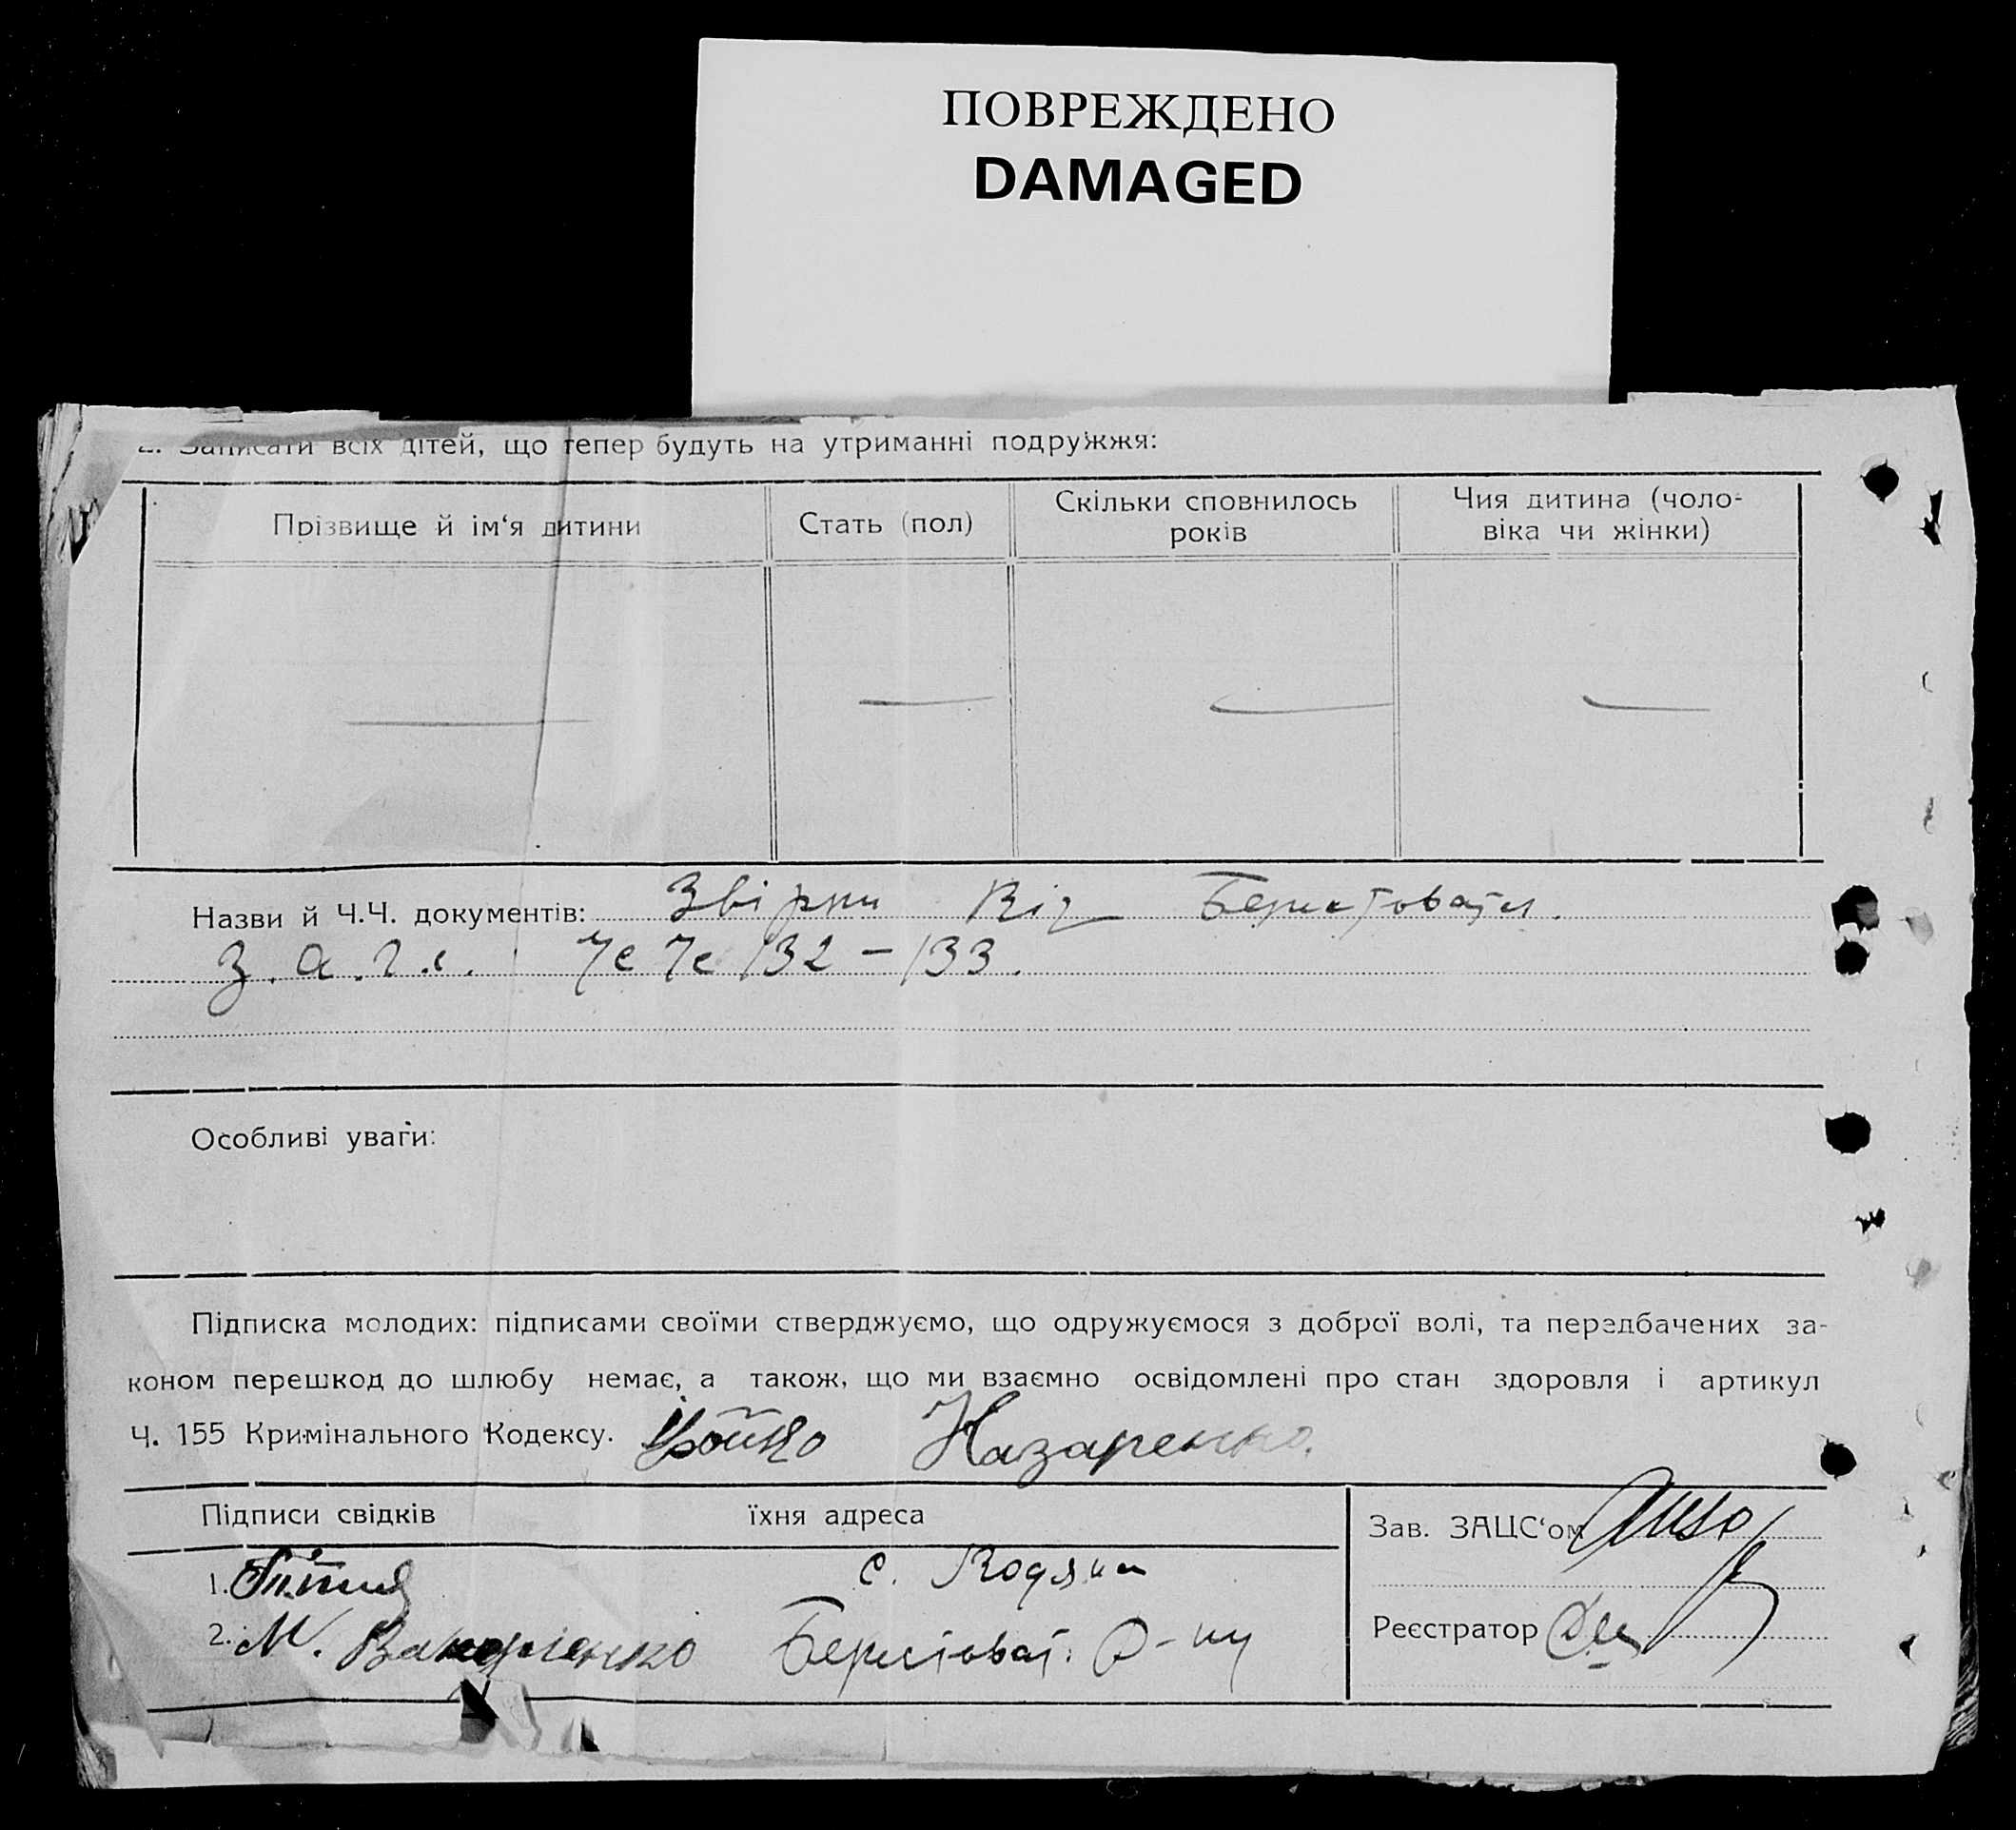 ПОВРЕЖДЕНО
DAMAGED
2. Записати всіх дітей, що тепер будуть на утриманні подружжя:
Прізвище й ім‘я дитини
Стать (пол)
Скільки сповнилось років
Чия дитина (чоло-
віка чи жінки)
Назви й Ч.Ч. документів: Звірки Від Берестовати.
З.а.г.с. 132 – 133.
Особливі уваги:
Підписка молодих: підписами своїми стверджуємо, що одружуємося з доброї волі, та передбачених за-
коном перешкод до шлюбу немає, а також, що ми взаємно освідомлені про стан здоровля і артикул
Ч. 155 Кримінального Кодексу. Назаренко.
Підписи свідків їхня адреса
Зав. ЗАЦС‘ом
1. с. Кодяки
2. М. Берестоват. Р-ну
Реєстратор